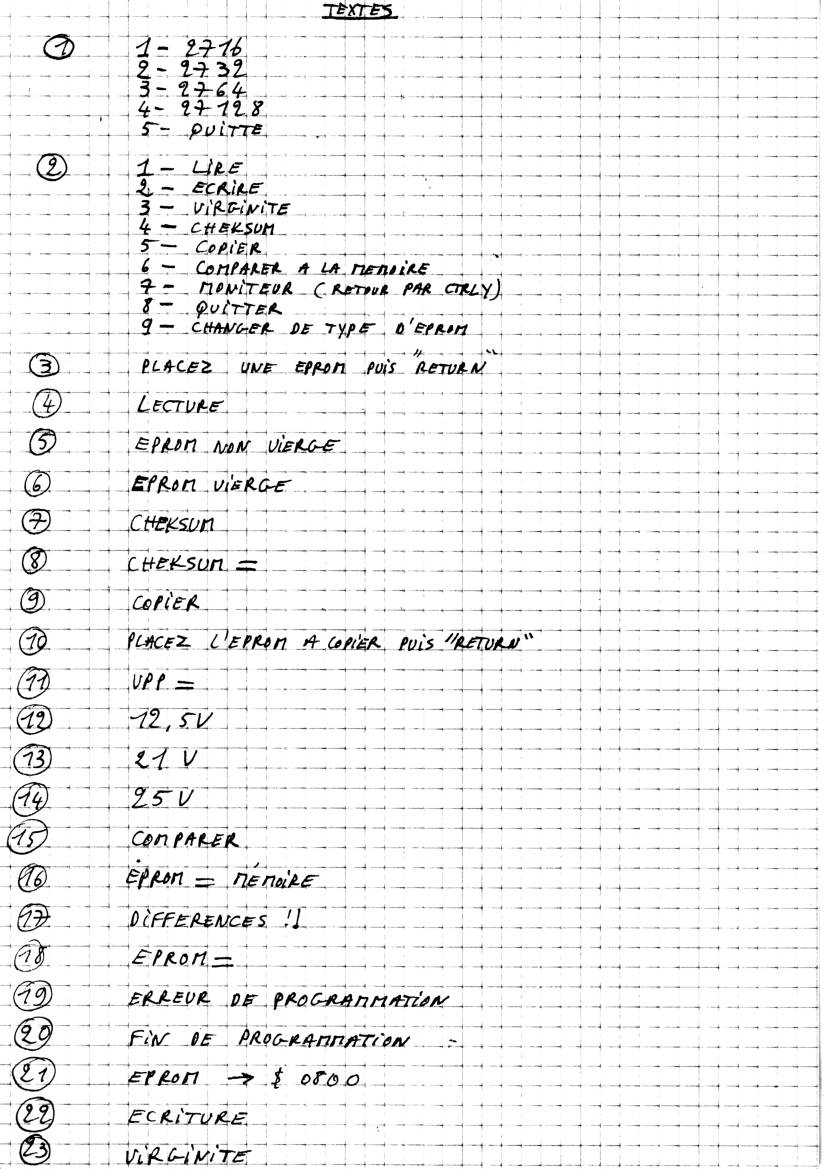 TEXTES
1 1 - 2716
2 - 2732
3 - 2764
4 - 27128
5 - QUITTE
2 1 - LIRE
2 - ECRIRE
3 - VIRGINITE
4 - CHEKSUM
5 - COPIER
6 - COMPARER A LA MEMOIRE
7 - MONITEUR (RETOUR PAR CTRLY)
8 - QUITTER
9 - CHANGER DE TYPE D'EPROM
3 PLACEZ UNE EPROM PUIS "RETURN"
4 LECTURE
5 EPROM NON VIERGE
6 EPROM VIERGE
7 CHEKSUM
8 CHEKSUM =
9 COPIER
10 PLACEZ L'EPROM A COPIER PUIS "RETURN"
11 VPP =
12 12,5V
13 21 V
14 25 V
15 COMPARER
16 EPROM = MEMOIRE
17 DIFFERENCES !!
18 EPROM =
19 ERREUR DE PROGRAMMATION
20 FIN DE PROGRAMMATION
21 EPROM → $ 0800
22 ECRITURE
23 VIRGINITE